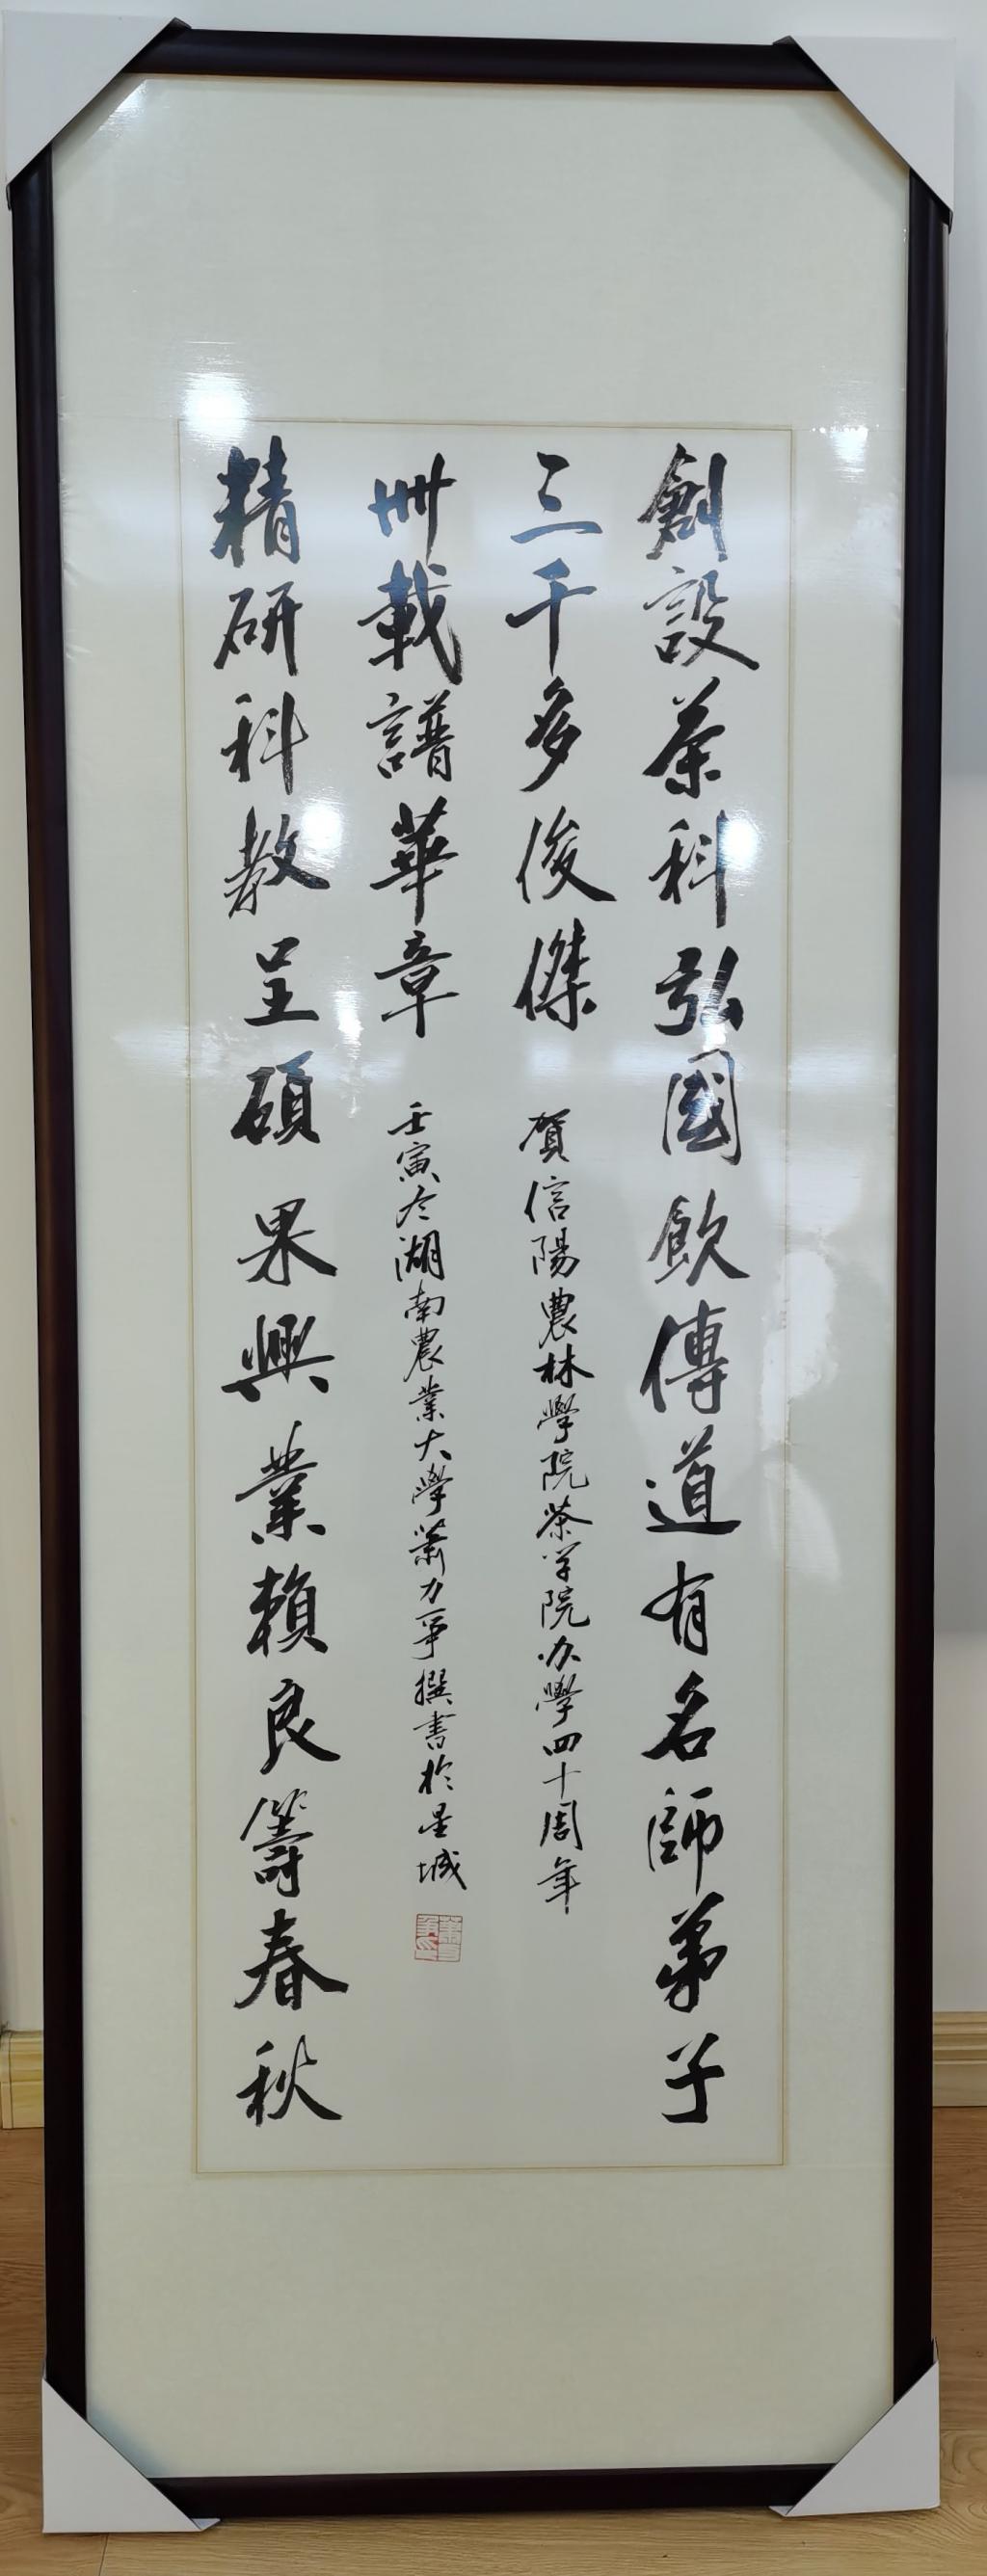 創設茶科弘國飲傳道有名師弟子
三千多俊傑
精研科教呈碩果興業賴良籌春秋
卌載譜華章
賀信陽農林學院茶学院办學四十周年
壬寅冬湖南農業大學蕭力爭撰書於星城
蕭力爭印